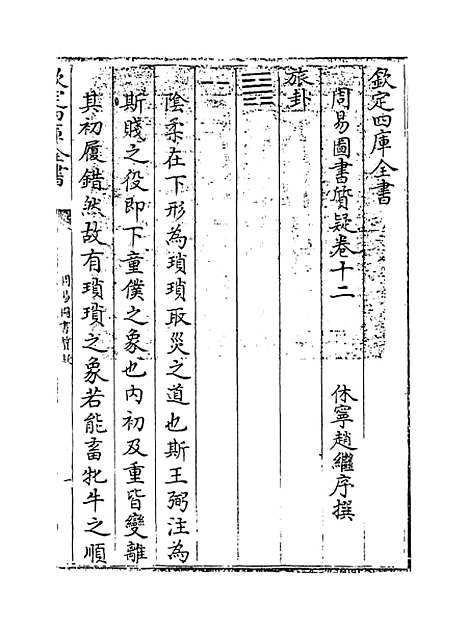 欽定四庫全書
周易圖書質疑卷十二
休寧趙繼序撰
旅卦
陰柔在下形為瑣瑣取災之道也斯王弼注為
斯賤之役即下童僕之象也内初及重皆變離
其初履錯然故有瑣瑣之象若能畜牝牛之順
欽定四庫全書
周易圖書質疑
一